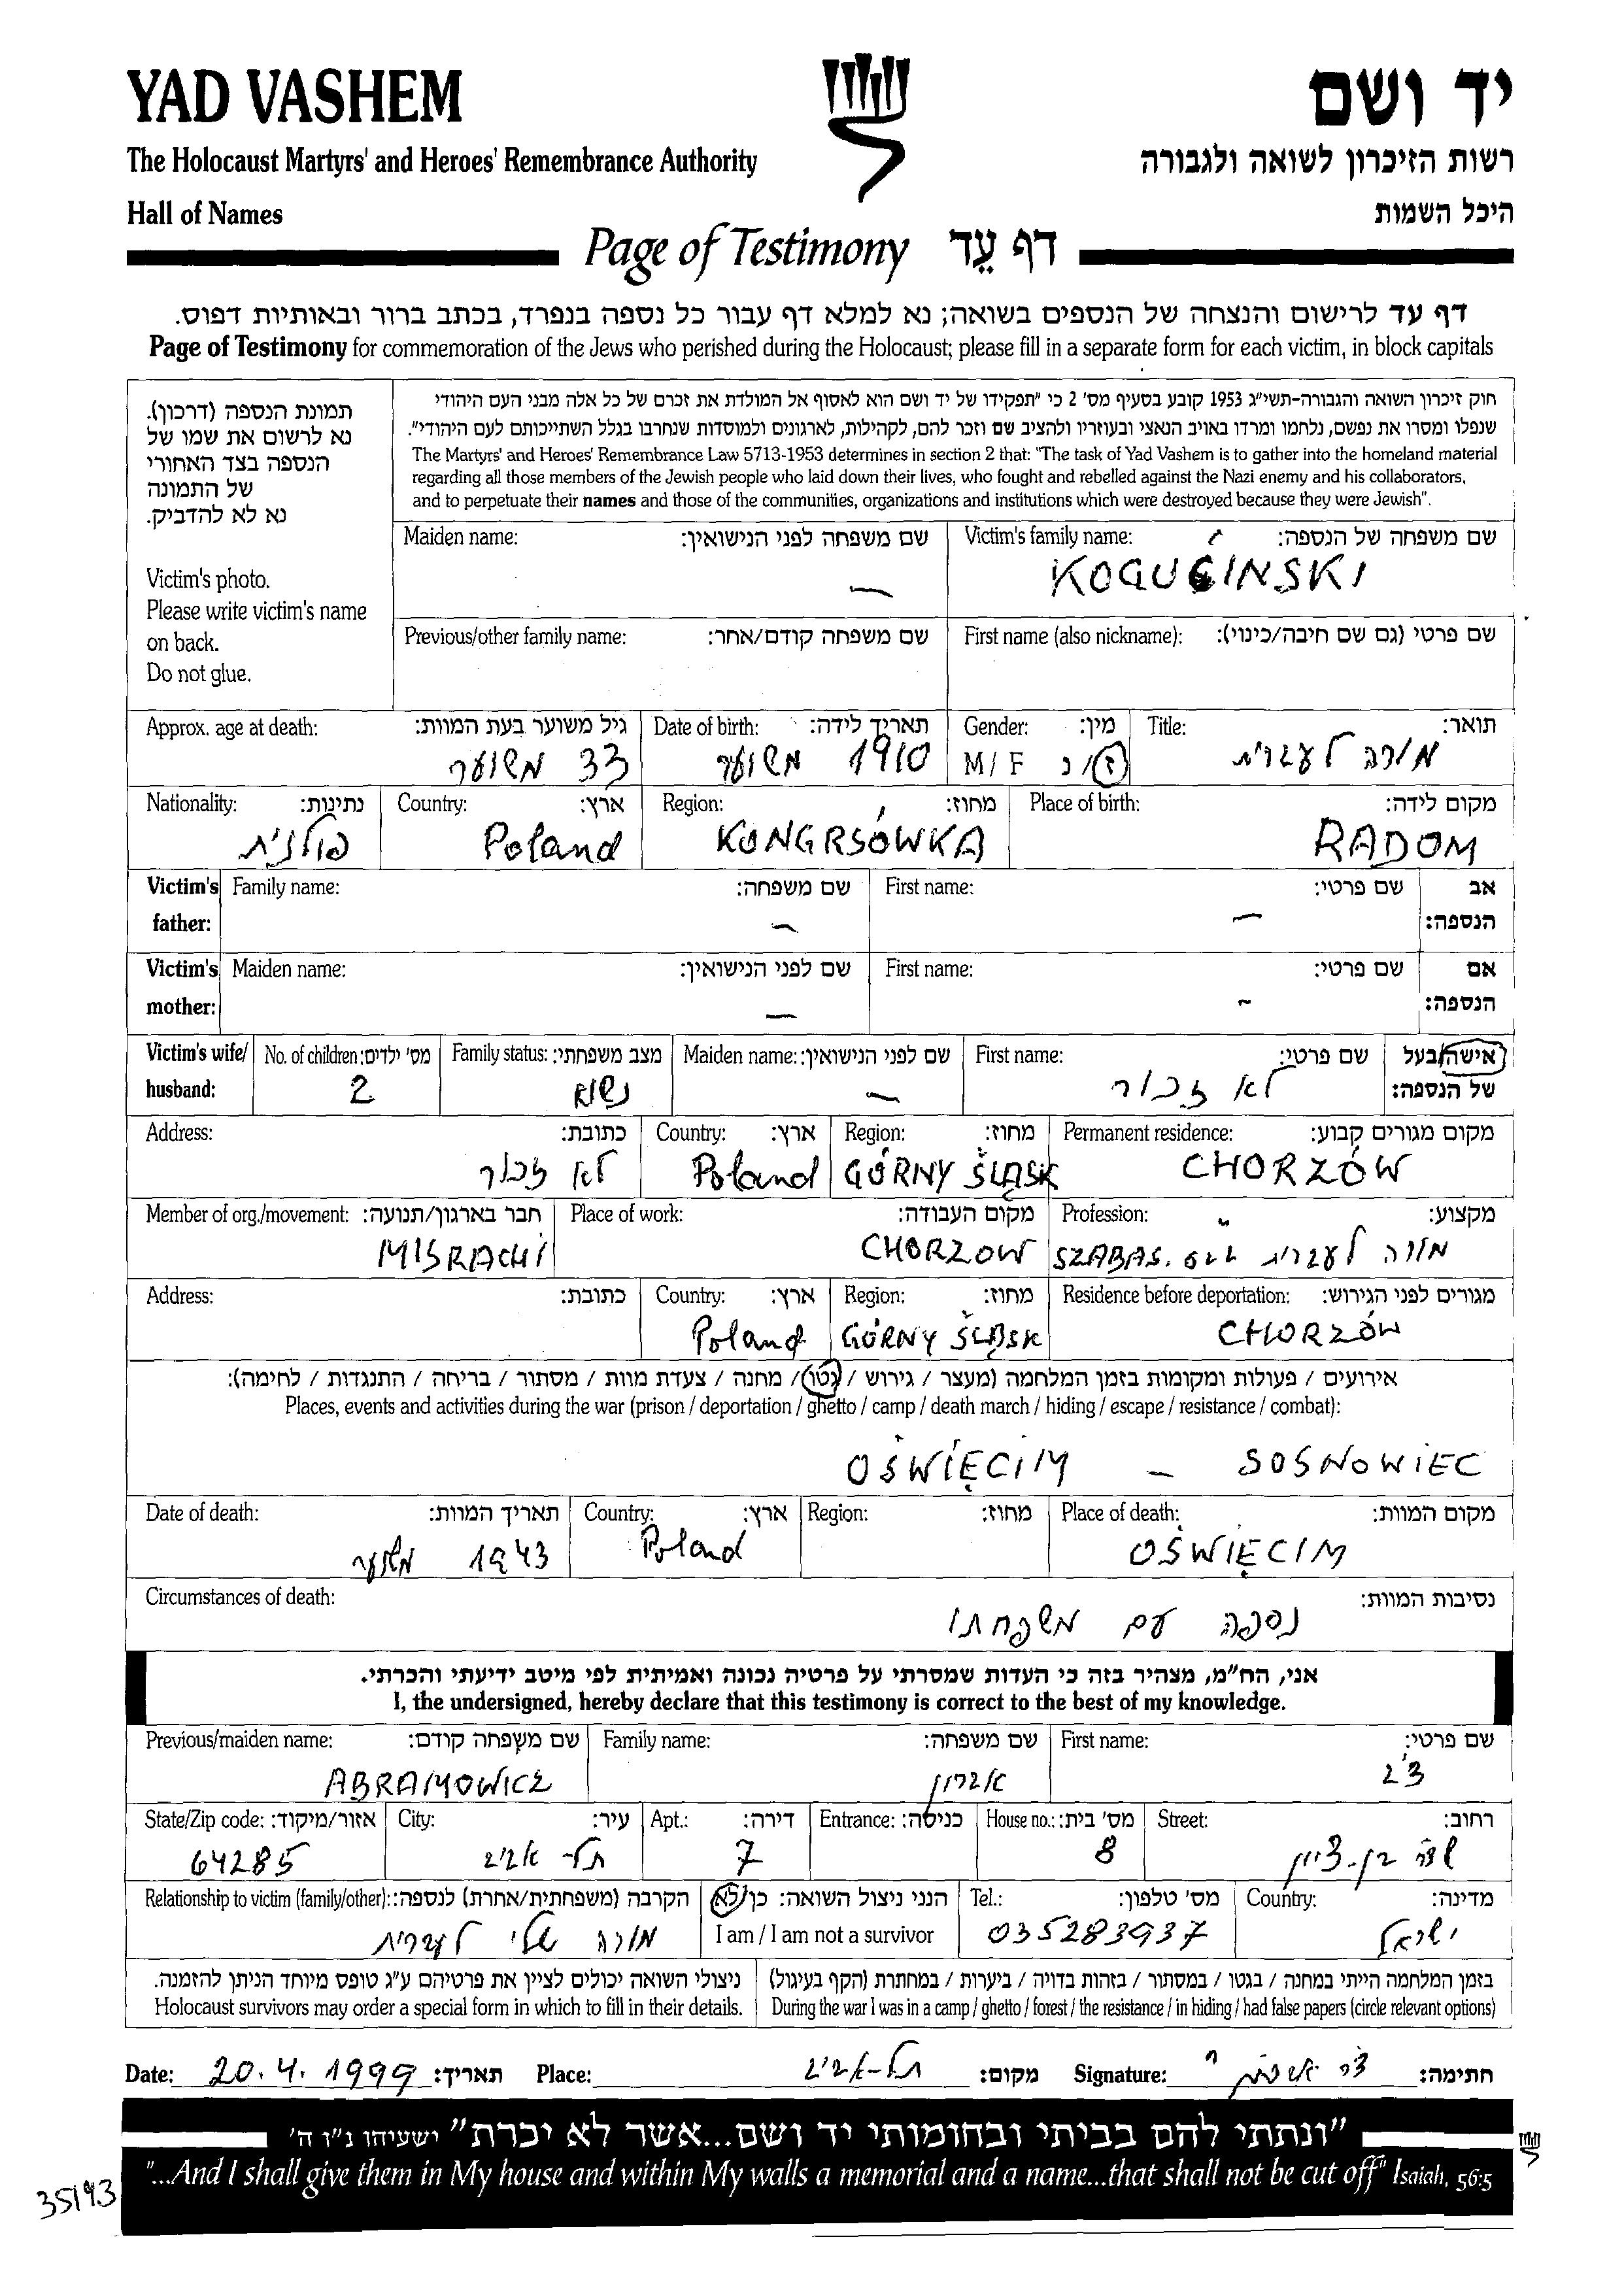 YAD VASHEM
יד ושם
The Holocaust Martyrs' and Heroes' Remembrance Authority
רשות הזיכרון לשואה ולגבורה
Hall of Names
היכל השמות
Page of Testimony דף עֵד
דף עד לרישום והנצחה של הנספים בשואה; נא למלא דף עבור כל נספה בנפרד, בכתב ברור ובאותיות דפוס.
Page of Testimony for commemoration of the Jews who perished during the Holocaust; please fill in a separate form for each victim, in block capitals
תמונת הנספה (דרכון).
נא לרשום את שמו של
הנספה בצד האחורי
של התמונה
נא לא להדביק.
Victim's photo.
Please write victim's name
on back.
Do not glue.
חוק זיכרון השואה והגבורה-תשי"ג 1953 קובע בסעיף מס' 2 כי "תפקידו של יד ושם הוא לאסוף אל המולדת את זכרם של כל אלה מבני העם היהודי
שנפלו ומסרו את נפשם, נלחמו ומרדו באויב הנאצי ובעוזריו ולהציב שם וזכר להם, לקהילות, לארגונים ולמוסדות שנחרבו בגלל השתייכותם לעם היהודי".
The Martyrs' and Heroes' Remembrance Law 5713-1953 determines in section 2 that: "The task of Yad Vashem is to gather into the homeland material
regarding all those members of the Jewish people who laid down their lives, who fought and rebelled against the Nazi enemy and his collaborators,
and to perpetuate their names and those of the communities, organizations and institutions which were destroyed because they were Jewish".
Maiden name: שם משפחה לפני הנישואין: Victim's family name: שם משפחה של הנספה:
— KOGUCIŃSKI
Previous/other family name: שם משפחה קודם/אחר: First name (also nickname): שם פרטי (גם שם חיבה/כינוי):
Approx. age at death: גיל משוער בעת המוות: Date of birth: תאריך לידה: Gender: מין: Title: תואר:
33 משוער 1910 משוער M / F ז/נ מורה לעברית
Nationality: נתינות: Country: ארץ: Region: מחוז: Place of birth: מקום לידה:
פולנית Poland KONGRSÓWKA RADOM
Victim's father: Family name: שם משפחה: First name: שם פרטי: אב הנספה:
— —
Victim's mother: Maiden name: שם לפני הנישואין: First name: שם פרטי: אם הנספה:
— -
Victim's wife/ husband: No. of children: מס' ילדים: Family status: מצב משפחתי: Maiden name: שם לפני הנישואין: First name: שם פרטי: אישה/בעל של הנספה:
2 נשוא — לא זכור
Address: כתובת: Country: ארץ: Region: מחוז: Permanent residence: מקום מגורים קבוע:
לא זכור Poland GÓRNY ŚLĄSK CHORZÓW
Member of org./movement: חבר בארגון/תנועה: Place of work: מקום העבודה: Profession: מקצוע:
MISRACHI CHORZOW מורה לעברית SZABAS.
Address: כתובת: Country: ארץ: Region: מחוז: Residence before deportation: מגורים לפני הגירוש:
Poland GÓRNY ŚLĄSK CHORZÓW
אירועים / פעולות ומקומות בזמן המלחמה (מעצר / גירוש / גטו / מחנה / צעדת מוות / מסתור / בריחה / התנגדות / לחימה):
Places, events and activities during the war (prison / deportation / ghetto / camp / death march / hiding / escape / resistance / combat):
OŚWIĘCIM — SOSNOWIEC
Date of death: תאריך המוות: Country: ארץ: Region: מחוז: Place of death: מקום המוות:
1943 משוער Poland OŚWIĘCIM
Circumstances of death: נסיבות המוות:
נספה עם משפחתו
אני, הח"מ, מצהיר בזה כי העדות שמסרתי על פרטיה נכונה ואמיתית לפי מיטב ידיעתי והכרתי.
I, the undersigned, hereby declare that this testimony is correct to the best of my knowledge.
Previous/maiden name: שם משפחה קודם: Family name: שם משפחה: First name: שם פרטי:
ABRAMOWICZ אברון צבי
State/Zip code: אזור/מיקוד: City: עיר: Apt.: דירה: Entrance: כניסה: House no.: מס' בית: Street: רחוב:
64285 תל-אביב 7 8 שד' בן-ציון
Relationship to victim (family/other): הקרבה (משפחתית/אחרת) לנספה: הנני ניצול השואה: כן/לא Tel.: מס' טלפון: Country: מדינה:
מורה שלי לעברית I am / I am not a survivor 035283937 ישראל
ניצולי השואה יכולים לציין את פרטיהם ע"ג טופס מיוחד הניתן להזמנה. בזמן המלחמה הייתי במחנה / בגטו / במסתור / בזהות בדויה / ביערות / במחתרת (הקף בעיגול)
Holocaust survivors may order a special form in which to fill in their details. During the war I was in a camp / ghetto / forest / the resistance / in hiding / had false papers (circle relevant options)
Date: 20.4.1999 תאריך: Place: תל-אביב מקום: Signature: חתימה:
"ונתתי להם בביתי ובחומותי יד ושם...אשר לא יכרת" ישעיהו נ"ו ה'
"...And I shall give them in My house and within My walls a memorial and a name...that shall not be cut off" Isaiah, 56:5
35193